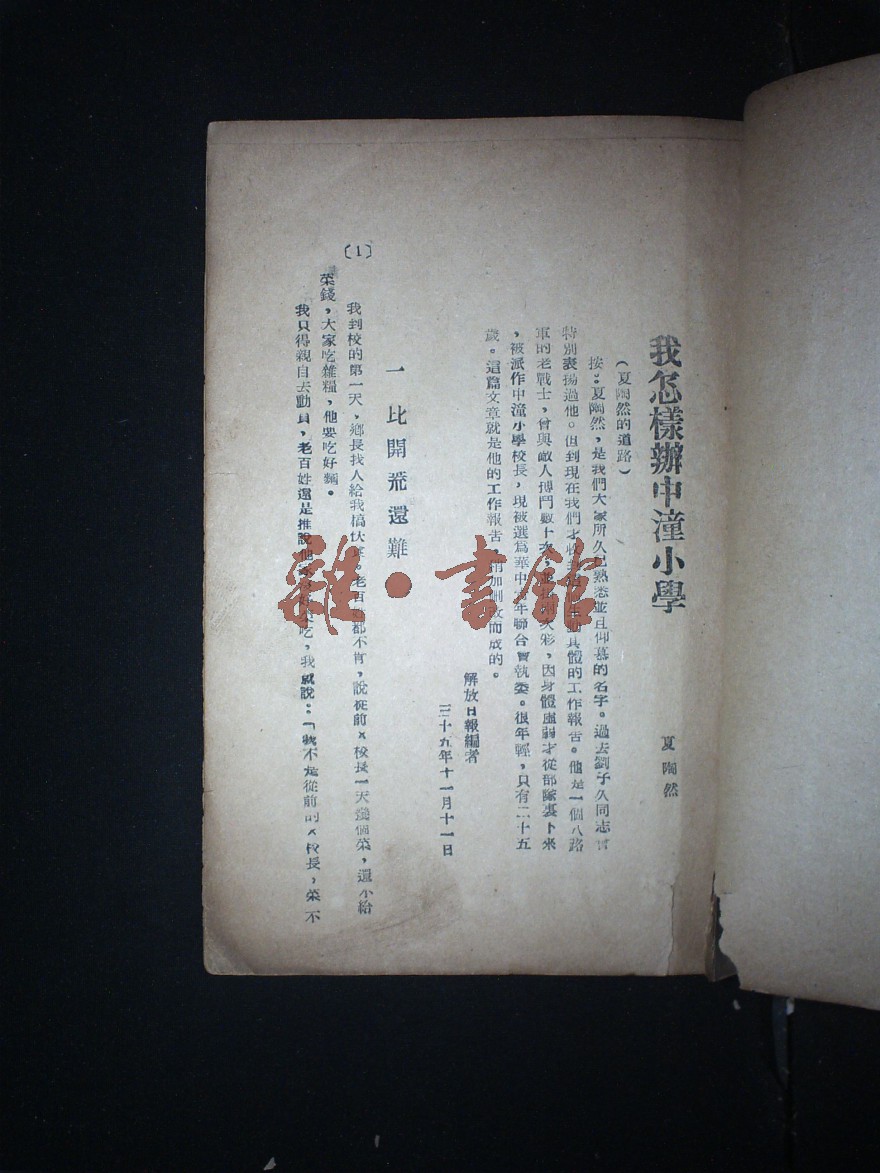 我怎樣辦中潼小學
夏陶然
(夏陶然的道路)
按:夏陶然,是我們大家所久已熟悉並且仰慕的名字。過去劉子久同志曾
特別表揚過他。但到現在我們才收具體的工作報告。他是一個八路
軍的老戰士,曾與敵人搏鬥數十次,彩,因身體虛弱才從部隊裏下來
,被派作中潼小學校長,現被選爲華中年聯合會執委。很年輕,只有二十五
歲。這篇文章就是他的工作報告,加刪改而成的。
解放日報編者
三十九年十一月十一日
一 比開荒還難
我到校的第一天,鄉長找人給我搞伙食。老百姓都不肯,說從前×校長一天幾個菜,還不給
菜錢,大家吃雜糧,他要吃好麵。
我只得親自去動員,老百姓還是推說他家吃,我就說:「我不是從前的×校長,菜不
〔1〕
雜·書館